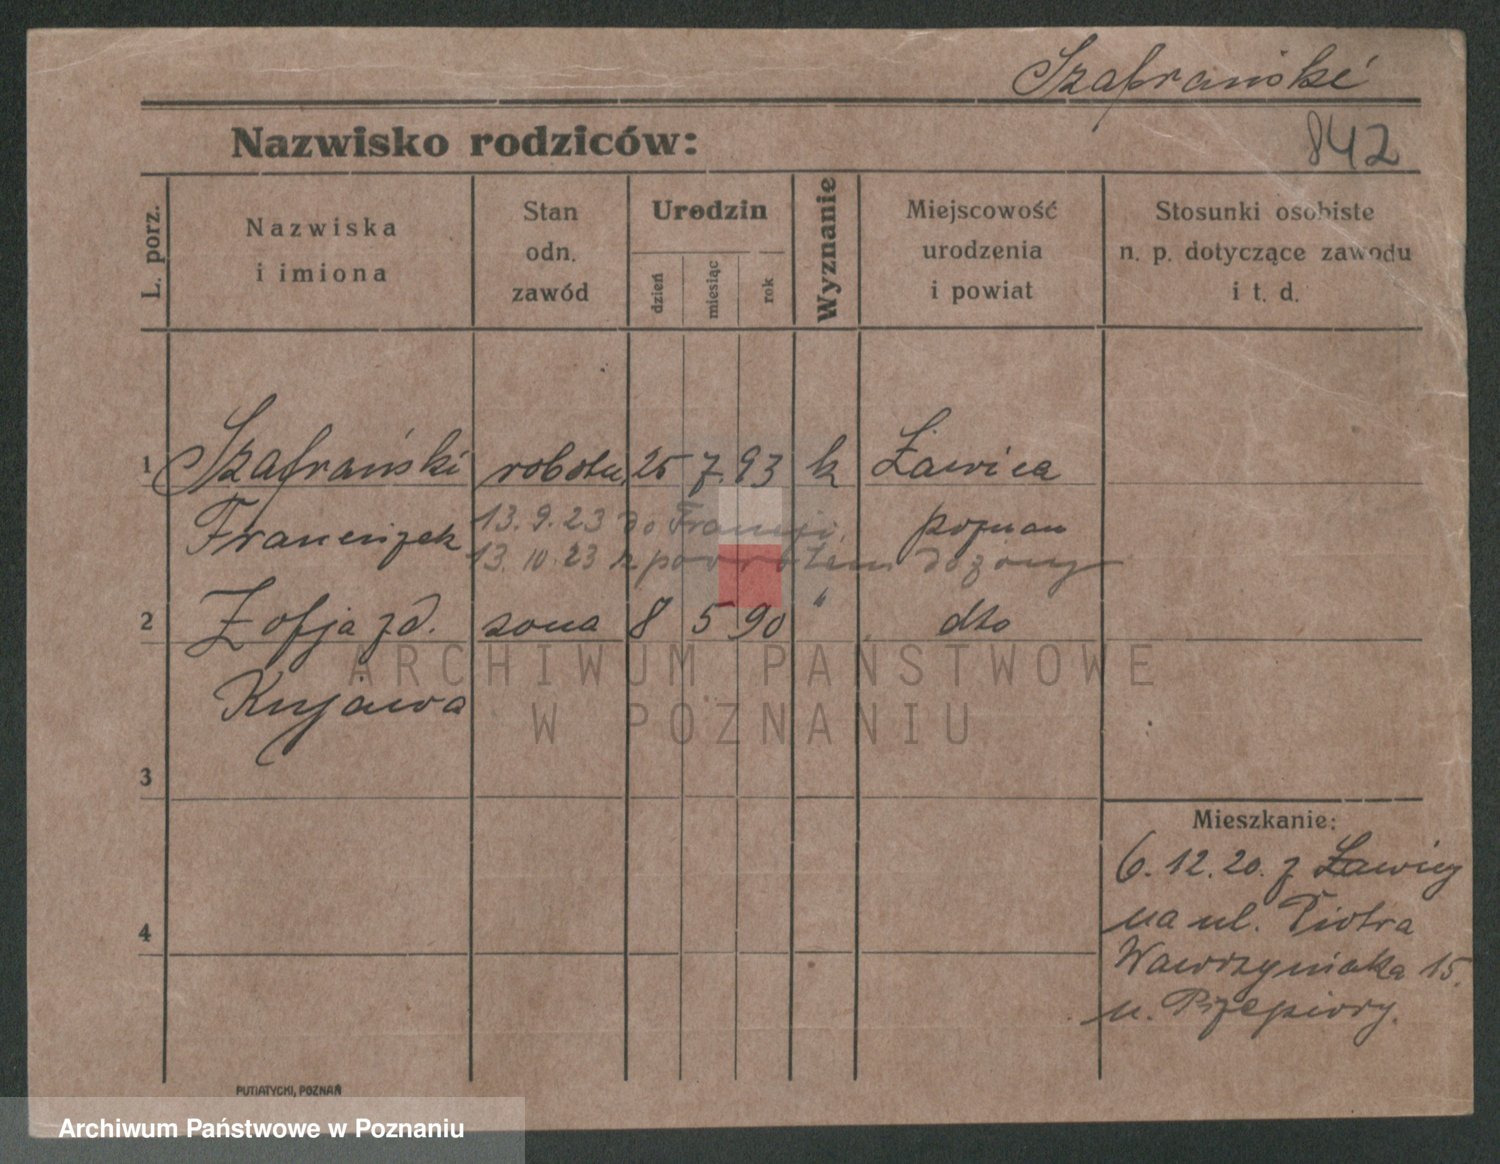 Szafrański
842
Nazwisko rodziców:
L. porz.
Nazwiska
i imiona
Stan
odn.
zawód
Urodzin
dzień
miesiąc
rok
Wyznanie
Miejscowość
urodzenia
i powiat
Stosunki osobiste
n. p. dotyczące zawodu
i t. d.
1 Szafrański robotn. 25 7. 93 k Ławica
Franciszek 13.9.23 do Francji poznan
13.10.23 z powrotem do żony
2 Zofja zd. zona 8 5 90 " dto
Kujawa
3
4
Mieszkanie:
6.12.20. z Ławicy
na ul. Piotra
Wawrzyniaka 15.
u. Przepiory.
PUTIATYCKI, POZNAŃ
ARCHIWUM PAŃSTWOWE
W POZNANIU
Archiwum Państwowe w Poznaniu